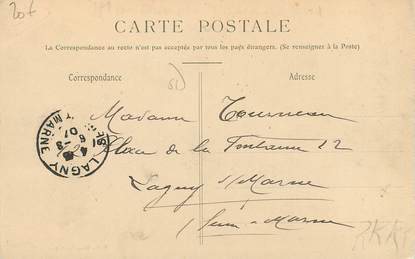 20f
CARTE POSTALE
La Correspondance au recto n'est pas acceptée par tous les pays étrangers. (Se renseigner à la Poste)
Correspondance
Adresse
Madame Tourneur
Place de la Fontaine 22
Lagny s/Marne
Seine-et-Marne
LAGNY
MARNE
07